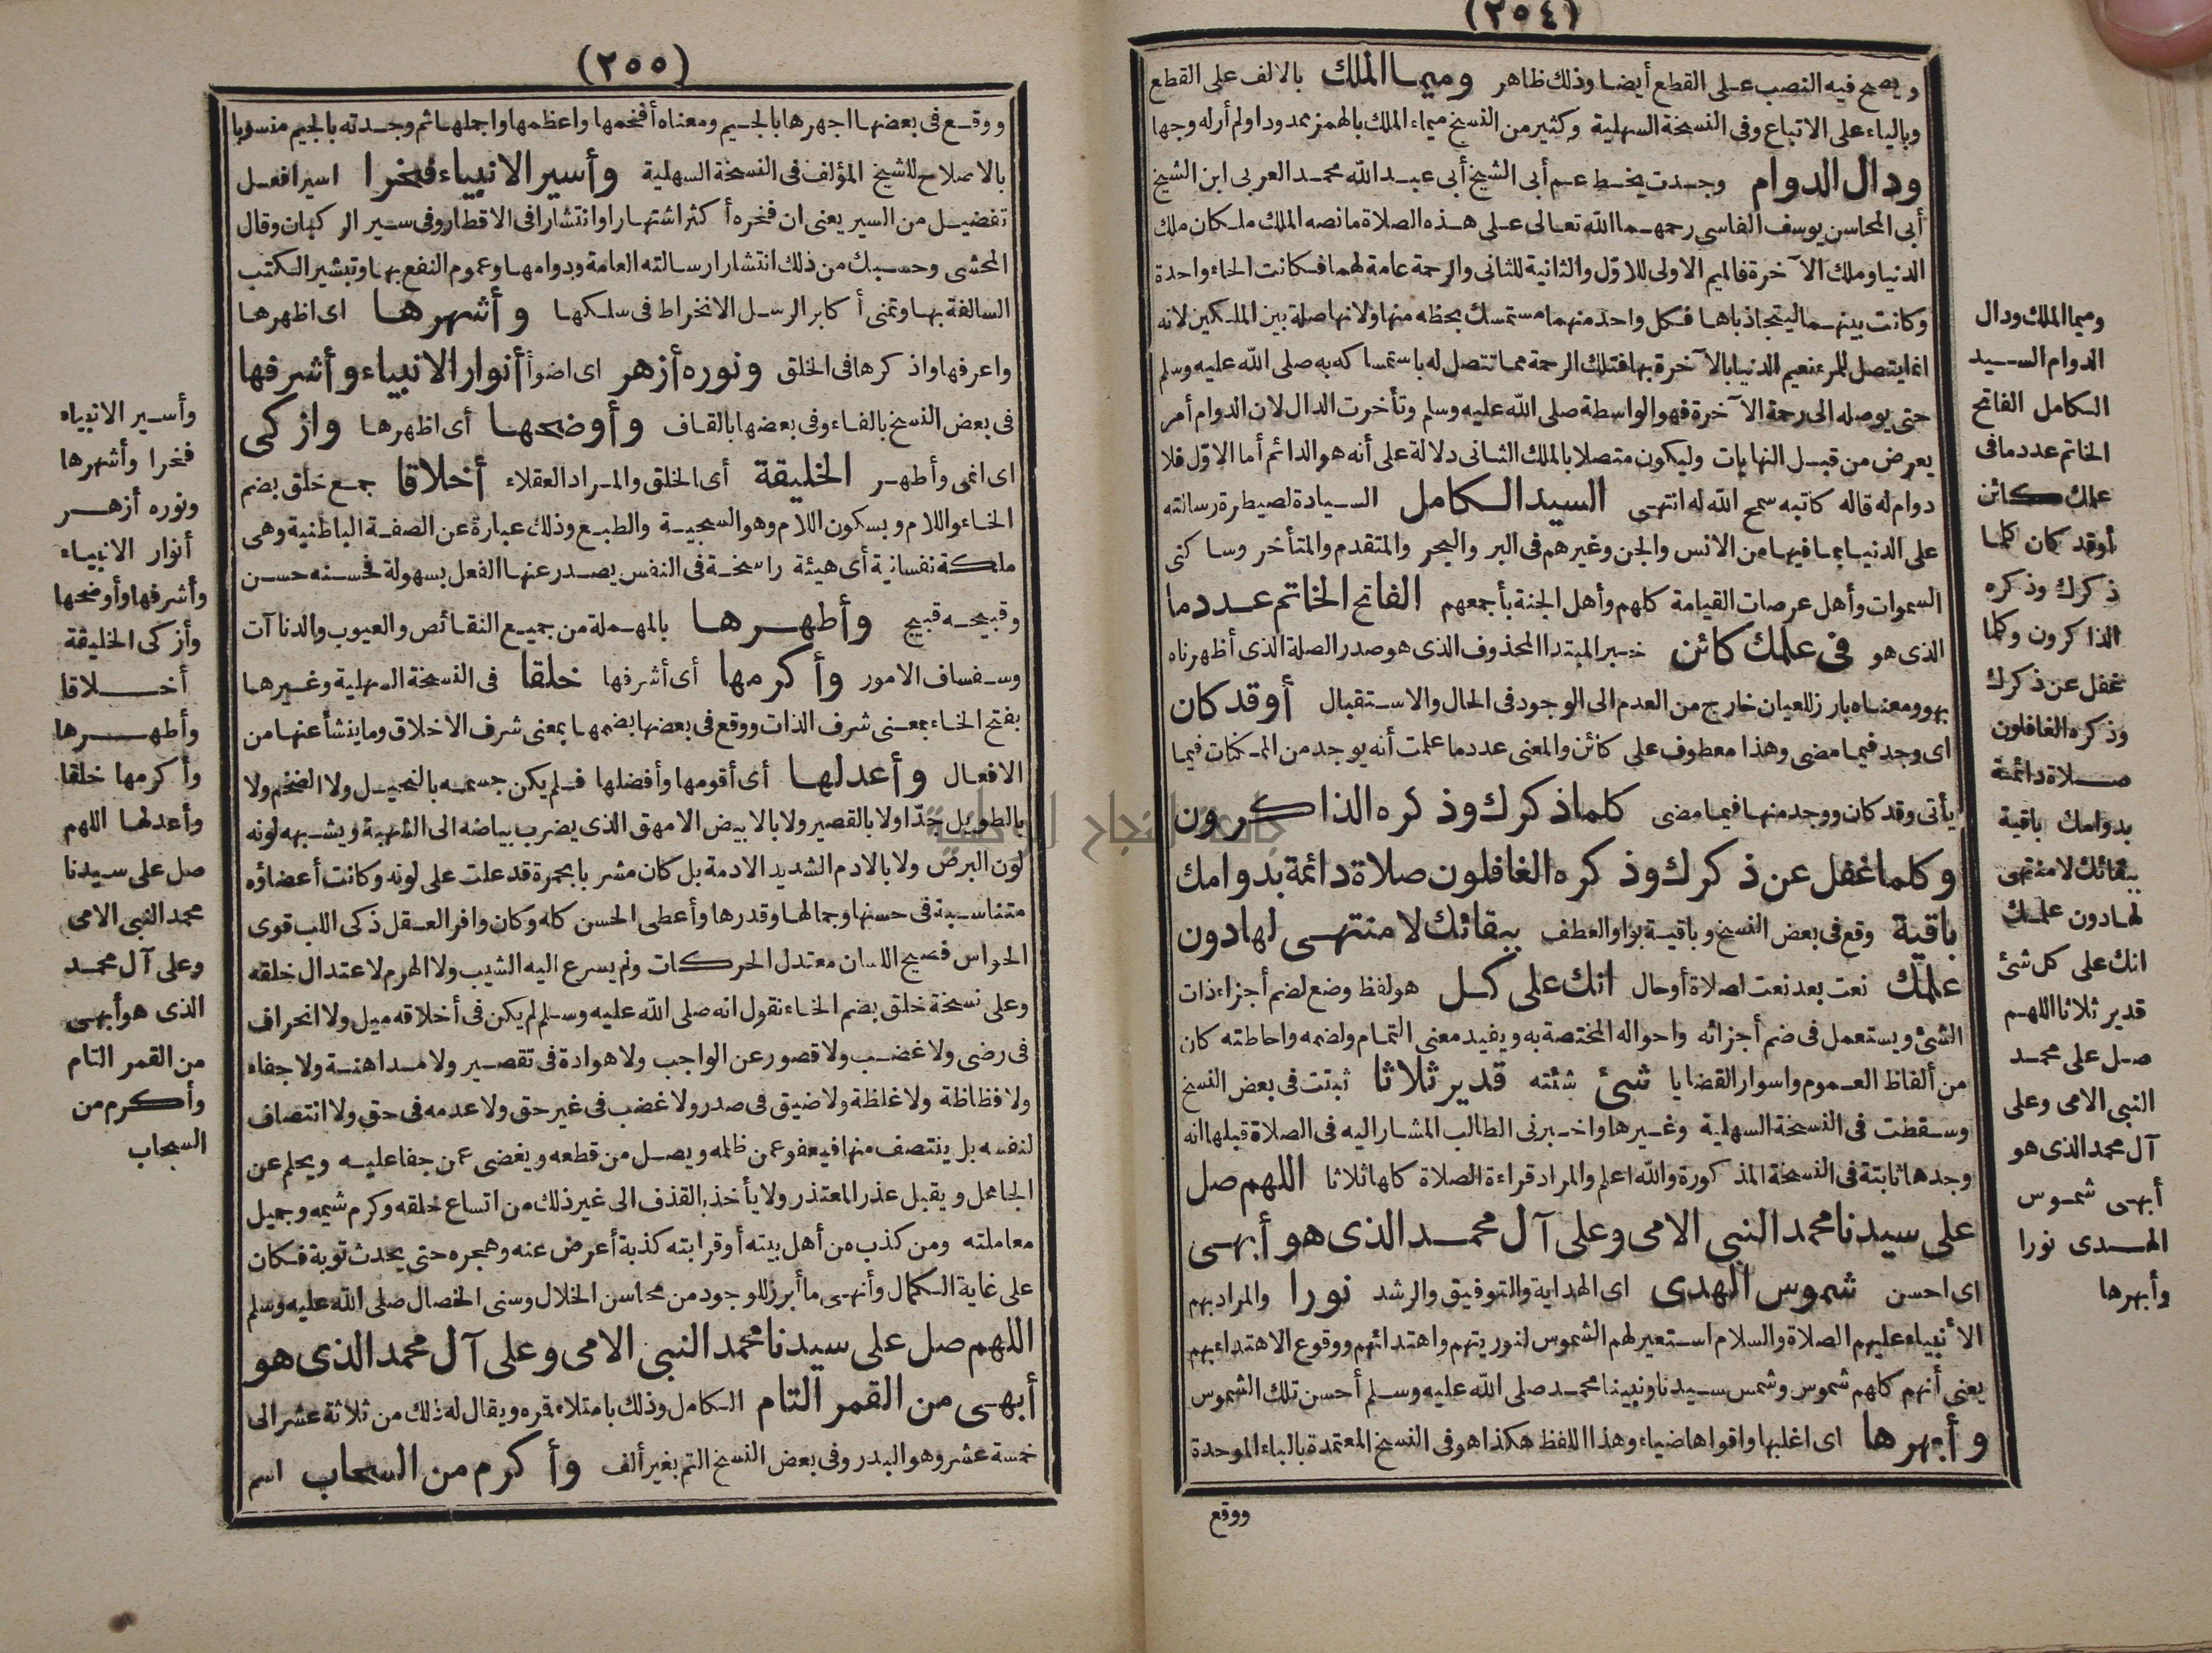 (٢٥٤)
ويصح فيه النصب على القطع أيضا وذلك ظاهر وميما الملك بالالف على القطع
وبالياء على الاتباع وفى النسخة السهلية وكثير من النسخ ميماء الملك بالهمز ممدودا ولم أرله وجها
ودال الدوام وجدت بخط عم أبى الشيخ أبى عبد الله محمد العربى ابن الشيخ
أبى المحاسن يوسف الفاسى رحمهما الله تعالى على هذه الصلاة مانصه الملك ملكان ملك
الدنيا وملك الآخرة فالميم الاولى للاوّل والثانية للثانى والرحمة عامة لهما فكانت الحاء واحدة
وكانت بينهما ليتجاذباها فكل واحد منهما مستمسك بحظه منها ولانها صلة بين الملكين لانه
انما يتصل للمرء نعيم الدنيا بالآخرة بها فتلك الرحمة مما تتصل له باستمساكه به صلى الله عليه وسلم
حتى يوصله الى رحمة الآخرة فهو الواسطة صلى الله عليه وسلم وتأخرت الدال لان الدوام أمر
يعرض من قبل النهايات وليكون متصلا بالملك الثانى دلالة على أنه هو الدائم أما الاوّل فلا
دوام له قاله كاتبه سمح الله له انتهى السيد الكامل السيادة لصيطرة رسالته
على الدنيا بما فيها من الانس والجن وغيرهم فى البر والبحر والمتقدم والمتأخر وساكنى
السموات وأهل عرصات القيامة كلهم وأهل الجنة بأجمعهم الفاتح الخاتم عدد ما
الذى هو فى علمك كائن خبر المبتدا المحذوف الذى هو صدر الصلة الذى أظهرناه
بهو ومعناه بارز للعيان خارج من العدم الى الوجود فى الحال والاستقبال أو قد كان
اى وجد فيما مضى وهذا معطوف على كائن والمعنى عدد ما علمت أنه يوجد من الممكنات فيما
يأتى وقد كان ووجد منها فيما مضى كلما ذكرك وذكره الذاكرون
وكلما غفل عن ذكرك وذكره الغافلون صلاة دائمة بدوامك
باقية وقع فى بعض النسخ وباقية بواو العطف ببقائك لا منتهى لها دون
علمك نعت بعد نعت لصلاة أو حال انك على كل هو لفظ وضع لضم أجزاء ذات
الشئ ويستعمل فى ضم أجزائه واحواله المختصة به ويفيد معنى التمام ولضمه واحاطته كان
من ألفاظ العموم واسوار القضايا شئ شئته قدير ثلاثا ثبتت فى بعض النسخ
وسقطت فى النسخة السهلية وغيرها واخبرنى الطالب المشار اليه فى الصلاة قبلها انه
وجدها ثابتة فى النسخة المذكورة والله اعلم والمراد قراءة الصلاة كلها ثلاثا اللهم صل
على سيدنا محمد النبى الامى وعلى آل محمد الذى هو أبهى
اى احسن شموس الهدى اى الهداية والتوفيق والرشد نورا والمراد بهم
الأنبياء عليهم الصلاة والسلام استعير لهم الشموس لنوريتهم واهتدائهم ووقوع الاهتداء بهم
يعنى أنهم كلهم شموس وشمس سيدنا ونبينا محمد صلى الله عليه وسلم أحسن تلك الشموس
وأبهرها اى اغلبها واقواها ضياء وهذا اللفظ هكذا هو فى النسخ المعتمدة بالباء الموحدة
ووقع
وميما الملك ودال
الدوام السيد
الكامل الفاتح
الخاتم عدد مافى
علمك كائن
أو قد كان كلما
ذكرك وذكره
الذاكرون وكلما
غفل عن ذكرك
وذكره الغافلون
صلاة دائمة
بدوامك باقية
ببقائك لا منتهى
لها دون علمك
انك على كل شئ
قدير ثلاثا اللهم
صل على محمد
النبى الامى وعلى
آل محمد الذى هو
أبهى شموس
الهدى نورا
وأبهرها
(٢٥٥)
ووقع فى بعضها اجهرها بالجيم ومعناه أفخمها واعظمها واجملها ثم وجدته بالجيم منسوبا
بالاصلاح للشيخ المؤلف فى النسخة السهلية وأسير الانبياء فخرا اسير افعل
تفضيل من السير يعنى ان فخره أكثر اشتهارا وانتشارا فى الاقطار وفى سير الركبان وقال
المحشى وحسبك من ذلك انتشار ارسالته العامة ودوامها وعموم النفع بها وتبشير الكتب
السالفة بها وتمنى أكابر الرسل الانخراط فى سلكها وأشهرها اى اظهرها
واعرفها واذكرها فى الخلق ونوره أزهر اى اضوأ أنوار الانبياء وأشرفها
فى بعض النسخ بالفاء وفى بعضها بالقاف وأوضحها أى اظهرها وازكى
اى انمى وأطهر الخليقة أى الخلق والمراد العقلاء أخلاقا جمع خلق بضم
الخاء واللام وبسكون اللام وهو السجية والطبع وذلك عبارة عن الصفة الباطنية وهى
ملكة نفسانية أى هيئة راسخة فى النفس يصدر عنها الفعل بسهولة فحسنه حسن
وقبيحه قبيح وأطهرها بالمهملة من جميع النقائص والعيوب والدنا آت
وسفساف الامور وأكرمها أى أشرفها خلقا فى النسخة السهلية وغيرها
بفتح الخاء بمعنى شرف الذات ووقع فى بعضها بضمها بمعنى شرف الاخلاق وما ينشأ عنها من
الافعال وأعدلها أى أقومها وأفضلها فلم يكن جسمه بالنحيل ولا الضخم ولا
بالطويل جدّا ولا بالقصير ولا بالابيض الامهق الذى يضرب بياضه الى الشهبة ويشبهه لونه
لون البرص ولا بالآدم الشديد الادمة بل كان مشربا بحمرة قد علت على لونه وكانت أعضاؤه
متناسبة فى حسنها وجمالها وقدرها وأعطى الحسن كله وكان وافر العقل ذكى اللب قوى
الحواس فصيح اللسان معتدل الحركات ولم يسرع اليه الشيب ولا الهرم لاعتدال خلقه
وعلى نسخة خلق بضم الخاء نقول انه صلى الله عليه وسلم لم يكن فى أخلاقه ميل ولا انحراف
فى رضى ولا غضب ولا قصور عن الواجب ولا هوادة فى تقصير ولا مداهنة ولا جفاء
ولا فظاظة ولا غلظة ولا ضيق فى صدر ولا غضب فى غير حق ولا عدمه فى حق ولا انتصاف
لنفسه بل ينتصف منها فيعفو عمن ظلمه ويصل من قطعه ويغضى عمن جفا عليه ويحلم عن
الجاهل ويقبل عذر المعتذر ولا يأخذ بالقذف الى غير ذلك من اتساع خلقه وكرم شيمه وجميل
معاملته ومن كذب من أهل بيته أو قرابته كذبة أعرض عنه وهجره حتى يحدث توبة فكان
على غاية الكمال وأنهى ما أبرز للوجود من محاسن الخلال وسنى الخصال صلى الله عليه وسلم
اللهم صل على سيدنا محمد النبى الامى وعلى آل محمد الذى هو
أبهى من القمر التام الكامل وذلك بامتلاء قمره ويقال له ذلك من ثلاثة عشر الى
خمسة عشر وهو البدر وفى بعض النسخ التم بغير ألف وأكرم من السحاب اسم
وأسير الانبياء
فخرا وأشهرها
ونوره أزهر
أنوار الانبياء
وأشرفها وأوضحها
وأزكى الخليقة
أخلاقا
وأطهرها
وأكرمها خلقا
وأعدلها اللهم
صل على سيدنا
محمد النبى الامى
وعلى آل محمد
الذى هو أبهى
من القمر التام
وأكرم من
السحاب